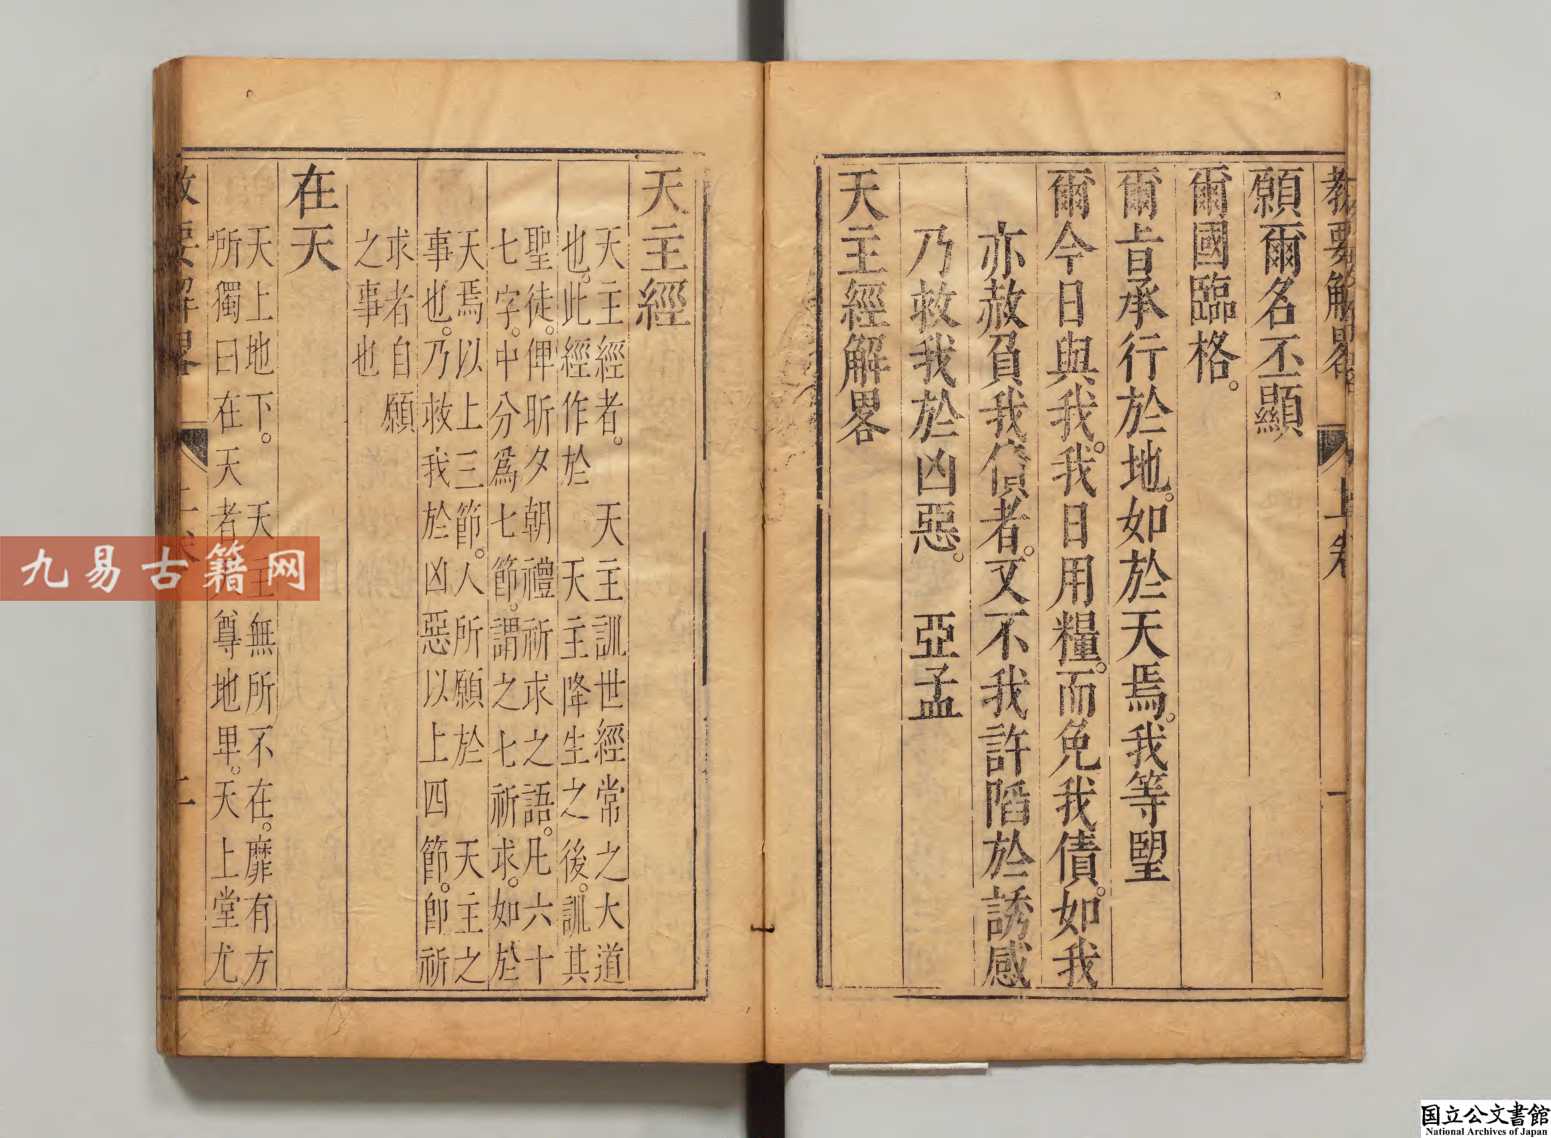 教要解畧 上卷 一
願爾名丕顯
爾國臨格。
爾旨承行於地。如於天焉。我等望
爾今日與我。我日用糧。而免我債。如我
亦赦負我債者。又不我許陷於誘感
乃救我於凶惡。 亞孟
天主經解畧
天主經
天主經者。 天主訓世經常之大道
也。此經作於 天主降生之後。訓其
聖徒。俾昕夕朝禮祈求之語。凡六十
七字。中分爲七節。謂之七祈求。如於
天焉以上三節。人所願於 天主之
事也。乃救我於凶惡以上四節。卽祈
求者自願
之事也
在天
天上地下。 天主無所不在。靡有方
所獨曰在天者尊地卑。天上堂尤
教要解畧
九易古籍网
国立公文書館
National Archives of Japan